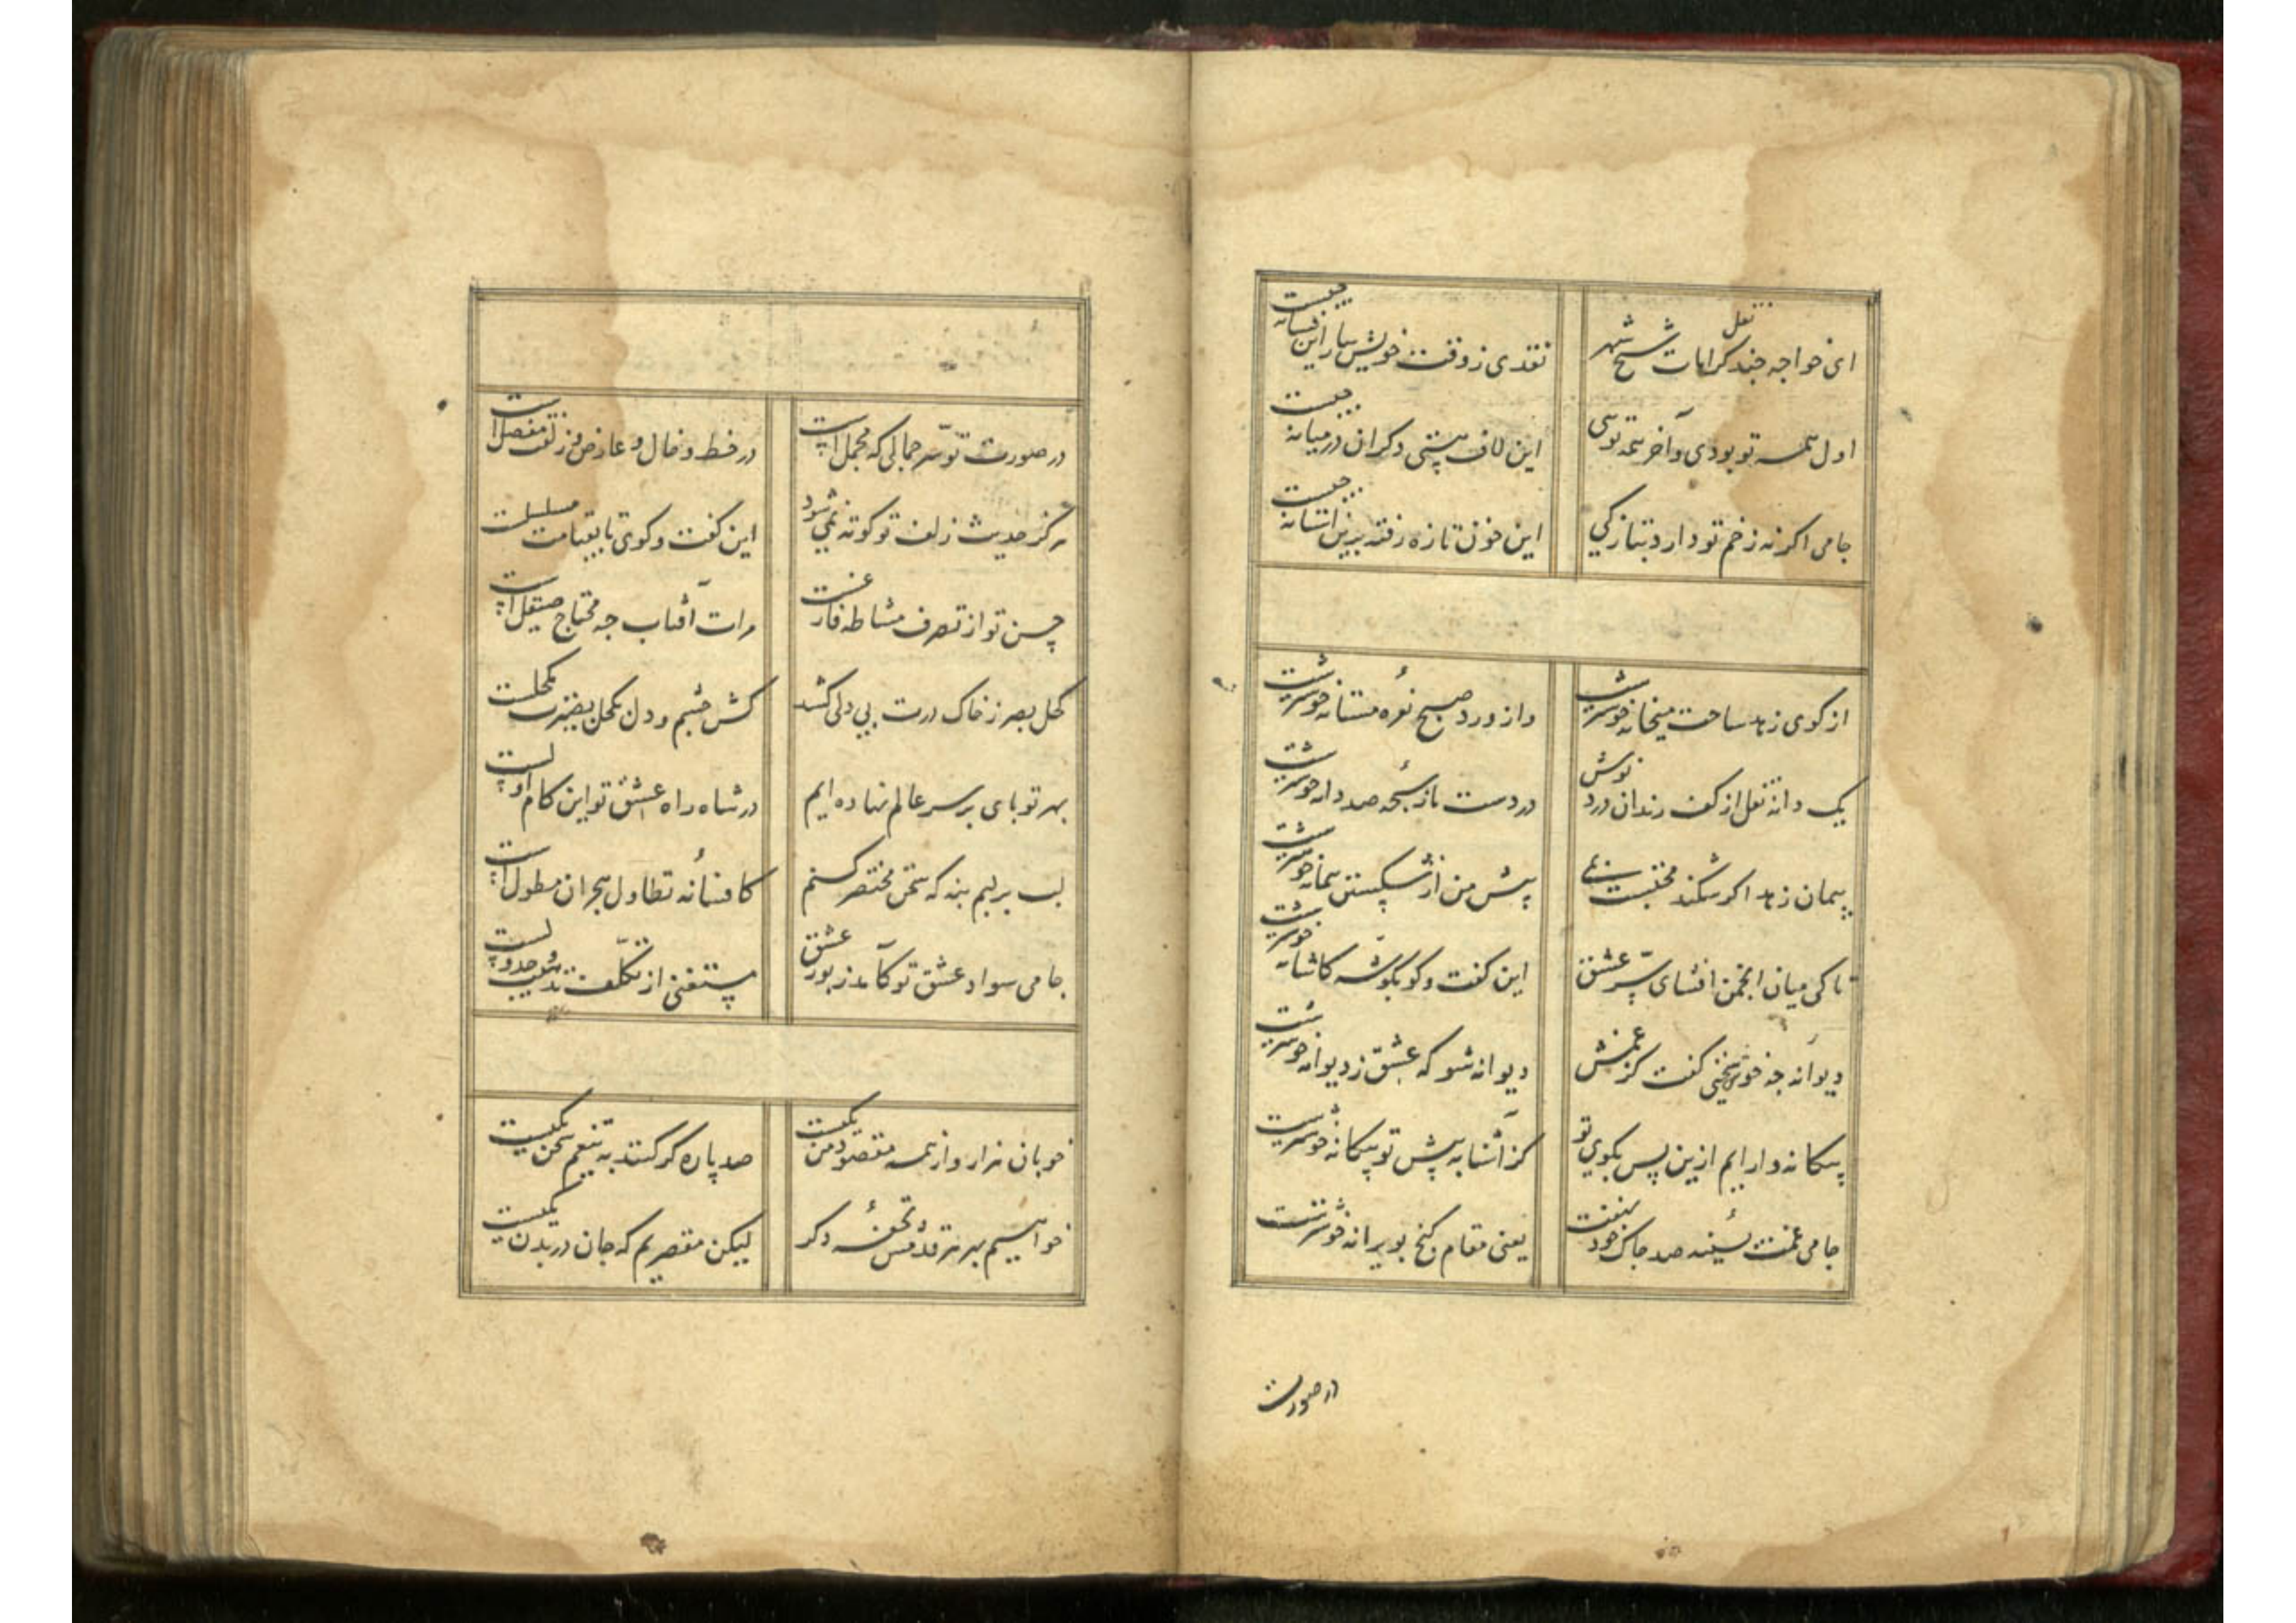 ای خواجه چند نقل کرامات شیخ شهر نقدی ز وقت خویش بیار این فسانه چیست
اول همه تو بودی و آخر همه تویی این لاف هستی دکران در میانه چیست
جامی اکر نه زخم تو دارد بتازکی این خون تازه رفته برین آستانه چیست
از کوی زهد ساحت میخانه خوشترست واز ورد صبح نعره مستانه خوشترست
یک دانه نقل از کف رندان درد نوش در دست ما ز سبحه صد دانه خوشترست
پیمان زهد اکر شکند محتسب پیش من از شکستن پیمانه خوشترست
تا کی میان انجمن افشای سر عشق این کفت وکو بکوشه کاشانه خوشترست
دیوانه چه خوش سخنی کفت کز غمش دیوانه شو که عشق ز دیوانه خوشترست
بیکانه وار ایم ازین پس بکوی تو کز آشنا به پیش تو بیکانه خوشترست
جامی غمت بسینه صد چاک خود نهفت یعنی مقام کنج بویرانه خوشترست
در صورت
در صورت تو سر جمالی که مجملست در خط و خال و عارض و زلفت مفصلست
هرکز حدیث زلف تو کوته نمی شود این کفت و کوی تا بقیامت مسلسلست
حسن تو از تصرف مشاطه فارغست مرات آفتاب چه محتاج صیقلست
کحل بصر ز خاک درت بی دلی کشد کش چشم و دل بکحل بصیرت مکحلست
بهر تو پای بر سر عالم نهاده ایم در شاه راه عشق تو این کام اولست
لب بر لبم بنه که سخن مختصر کنم کافسانه تطاول هجران مطولست
جامی سواد عشق تو کآمد زبور عشق مستغنی از تکلف تذهیب و جدولست
خوبان هزار و از همه مقصود من یکیست صد پاره کر کنند به تیغم سخن یکیست
خواهیم بهر هر قدمش تحفه دکر لیکن مقصریم که جان در بدن یکیست